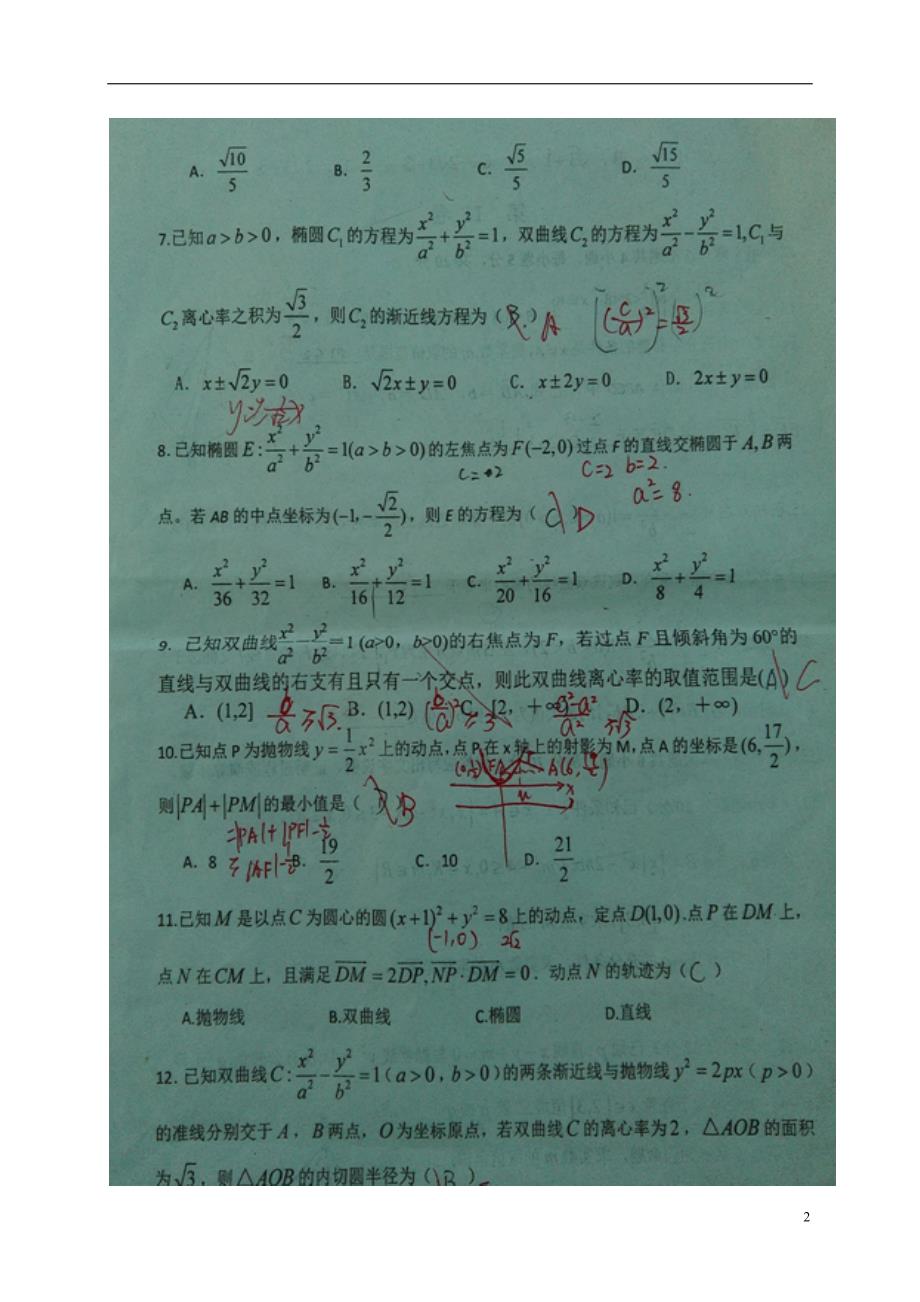 A. √10/5 B. 2/3 C. √5/5 D. √15/5
7.已知a>b>0，椭圆C₁的方程为x²/a²+y²/b²=1，双曲线C₂的方程为x²/a²-y²/b²=1,C₁与
C₂离心率之积为√3/2，则C₂的渐近线方程为（B.）A ((c/a)²)²=(√3/2)²
A. x±√2y=0 B. √2x±y=0 C. x±2y=0 D. 2x±y=0
8.已知椭圆E:x²/a²+y²/b²=1(a>b>0)的左焦点为F(-2,0)过点F的直线交椭圆于A,B两
C=2 b=2.
a²=8.
点。若AB的中点坐标为(-1,-√2/2)，则E的方程为（C）D
A. x²/36+y²/32=1 B. x²/16+y²/12=1 C. x²/20+y²/16=1 D. x²/8+y²/4=1
9. 已知双曲线x²/a²-y²/b²=1 (a>0，b>0)的右焦点为F，若过点F且倾斜角为60°的
直线与双曲线的右支有且只有一个交点，则此双曲线离心率的取值范围是(A) C
A. (1,2] b/a≥√3 B. (1,2) (b/a)²≥3 C. [2，+∞) D. (2，+∞)
10.已知点P为抛物线y=1/2x²上的动点,点P在x轴上的射影为M,点A的坐标是(6,17/2)，
则|PA|+|PM|的最小值是（ ）B
=|PA|+|PF|-1/2
≥|AF|-1/2
A. 8 B. 19/2 C. 10 D. 21/2
11.已知M是以点C为圆心的圆(x+1)²+y²=8上的动点，定点D(1,0).点P在DM上，
(-1,0) 2√2
点N在CM上，且满足DM=2DP,NP·DM=0. 动点N的轨迹为（C）
A.抛物线 B.双曲线 C.椭圆 D.直线
12. 已知双曲线C:x²/a²-y²/b²=1（a>0,b>0)的两条渐近线与抛物线y²=2px（p>0）
的准线分别交于A，B两点，O为坐标原点，若双曲线C的离心率为2，△AOB的面积
为√3，则△AOB的内切圆半径为（B）
2